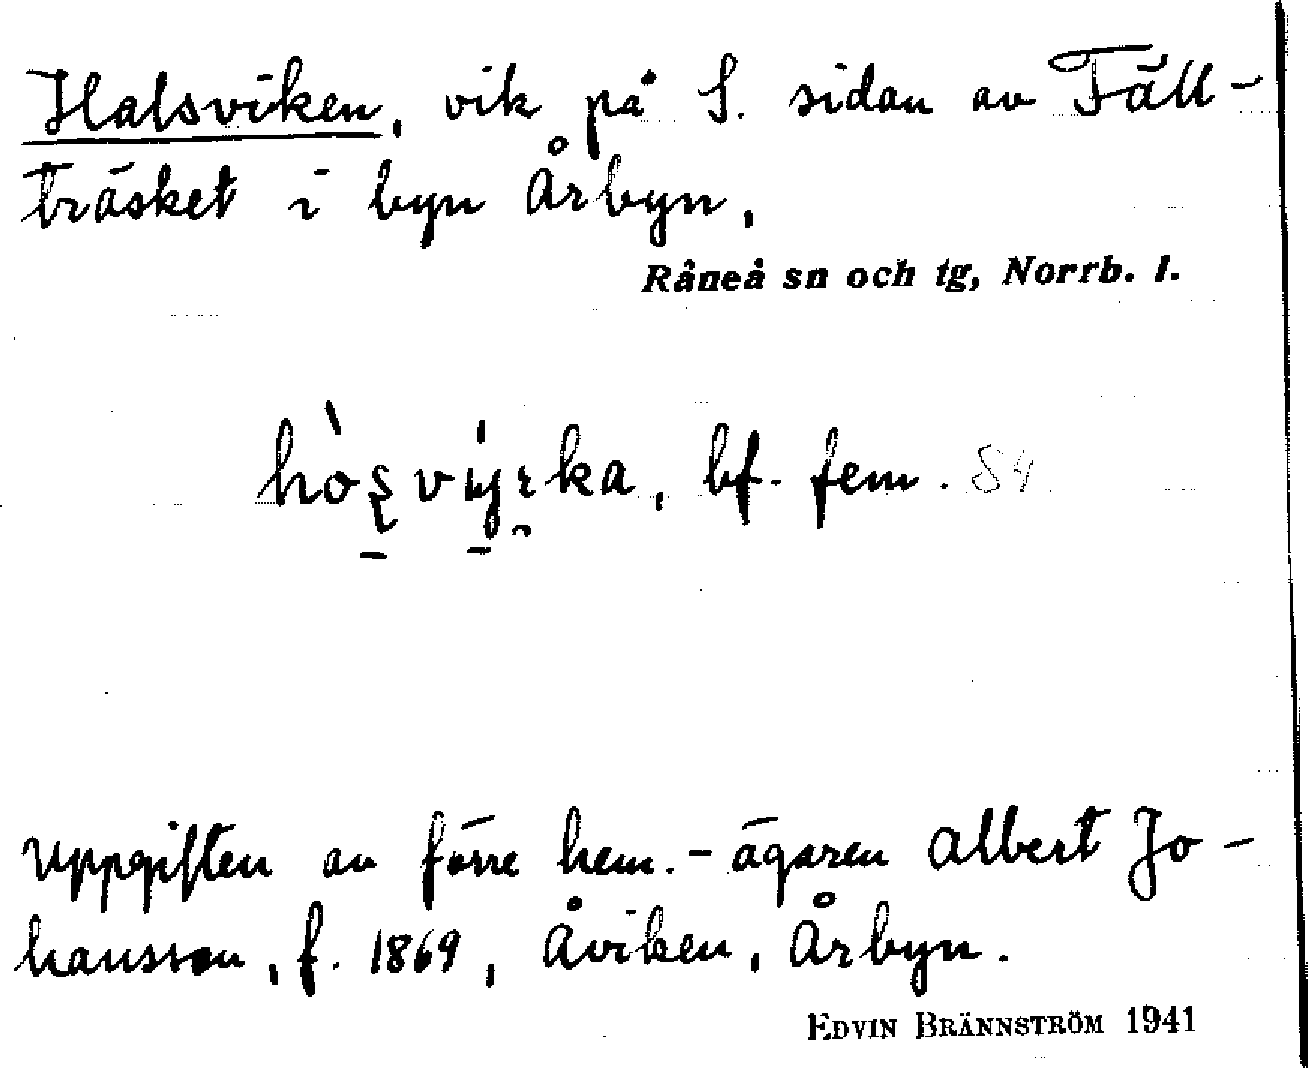 Halsviken, vik på S. sidan av Fäll-
träsket i byn Årbyn,
Råneå sn och tg, Norrb. l.
bf. fem. 84
Uppgiften av förre hem.-ägaren Albert Jo-
hansson, f. 1869, Åviken, Årbyn.
EDVIN BRÄNNSTRÖM 1941